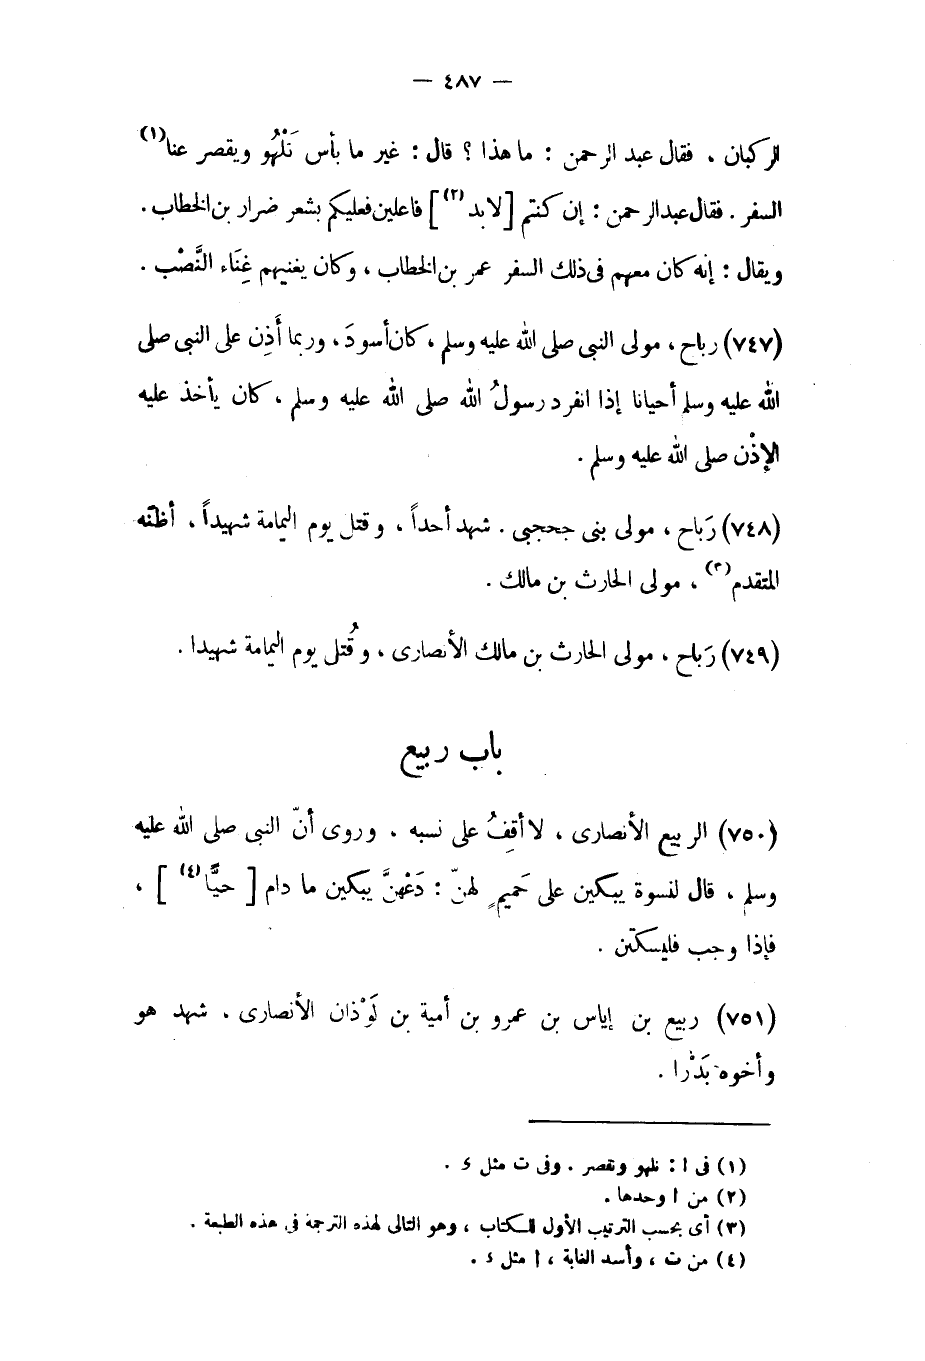 — ٤٨٧ —
الركبان . فقال عبد الرحمن : ما هذا ؟ قال : غير ما بأس نَلْهُو ويقصر عنا(١)
السفر . فقال عبد الرحمن : إن كنتم [ لا بد(٢) ] فاعلين فعليكم بشعر ضرار بن الخطاب .
ويقال : إنه كان معهم فى ذلك السفر عمر بن الخطاب ، وكان يغنيهم غِنَاء النَّصْب .
(٧٤٧) رباح ، مولى النبى صلى الله عليه وسلم ، كان أسودَ ، وربما أَذِن على النبى صلى
الله عليه وسلم أحيانا إذا انفرد رسولُ الله صلى الله عليه وسلم ، كان يأخذ عليه
الإذْن صلى الله عليه وسلم .
(٧٤٨) رَباح ، مولى بنى جحجبى . شهد أحداً ، وقتل يوم اليمامة شهيداً ، أظنّه
المتقدم(٣) ، مولى الحارث بن مالك .
(٧٤٩) رَباح ، مولى الحارث بن مالك الأنصارى ، وقُتل يوم اليمامة شهيدا .
باب ربيع
(٧٥٠) الربيع الأنصارى ، لا أقِفُ على نسبه . وروى أنّ النبى صلى الله عليه
وسلم ، قال لنسوة يبكين على حَميمٍ لهنّ : دَعْهنَّ يبكين ما دام [ حيًّا(٤) ] ،
فإذا وجب فليسكتن .
(٧٥١) ربيع بن إياس بن عمرو بن أمية بن لَوْذان الأنصارى . شهد هو
وأخوه بَدْرا .
(١) فى ا : نلهو ونقصر . وفى ت مثل ء .
(٢) من ا وحدها .
(٣) أى بحسب الترتيب الأول للكتاب ، وهو التالى لهذه الترجمة فى هذه الطبعة .
(٤) من ت ، وأسد الغابة ، ا مثل ء .